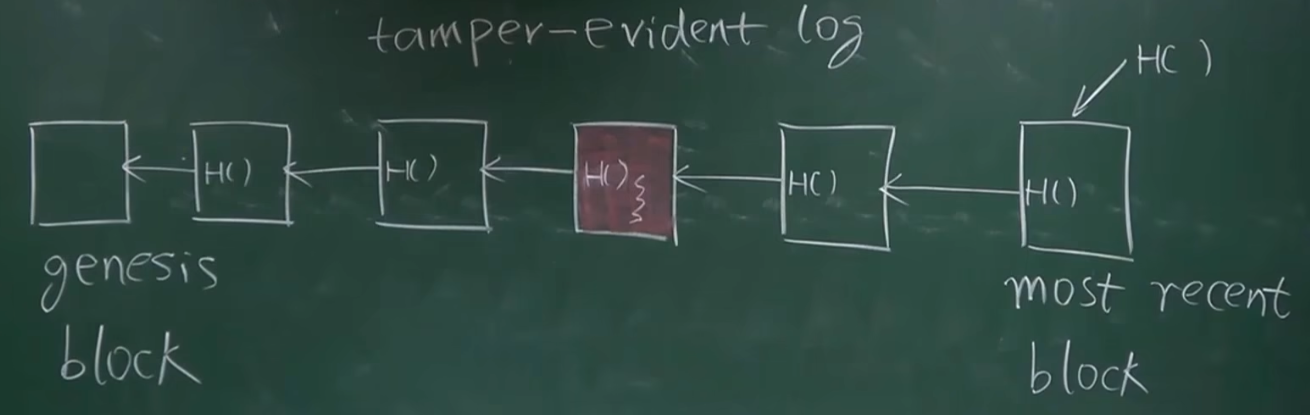 tamper-evident log
H( )
H( )
H( )
H( )
H( )
H( )
genesis
block
most recent
block